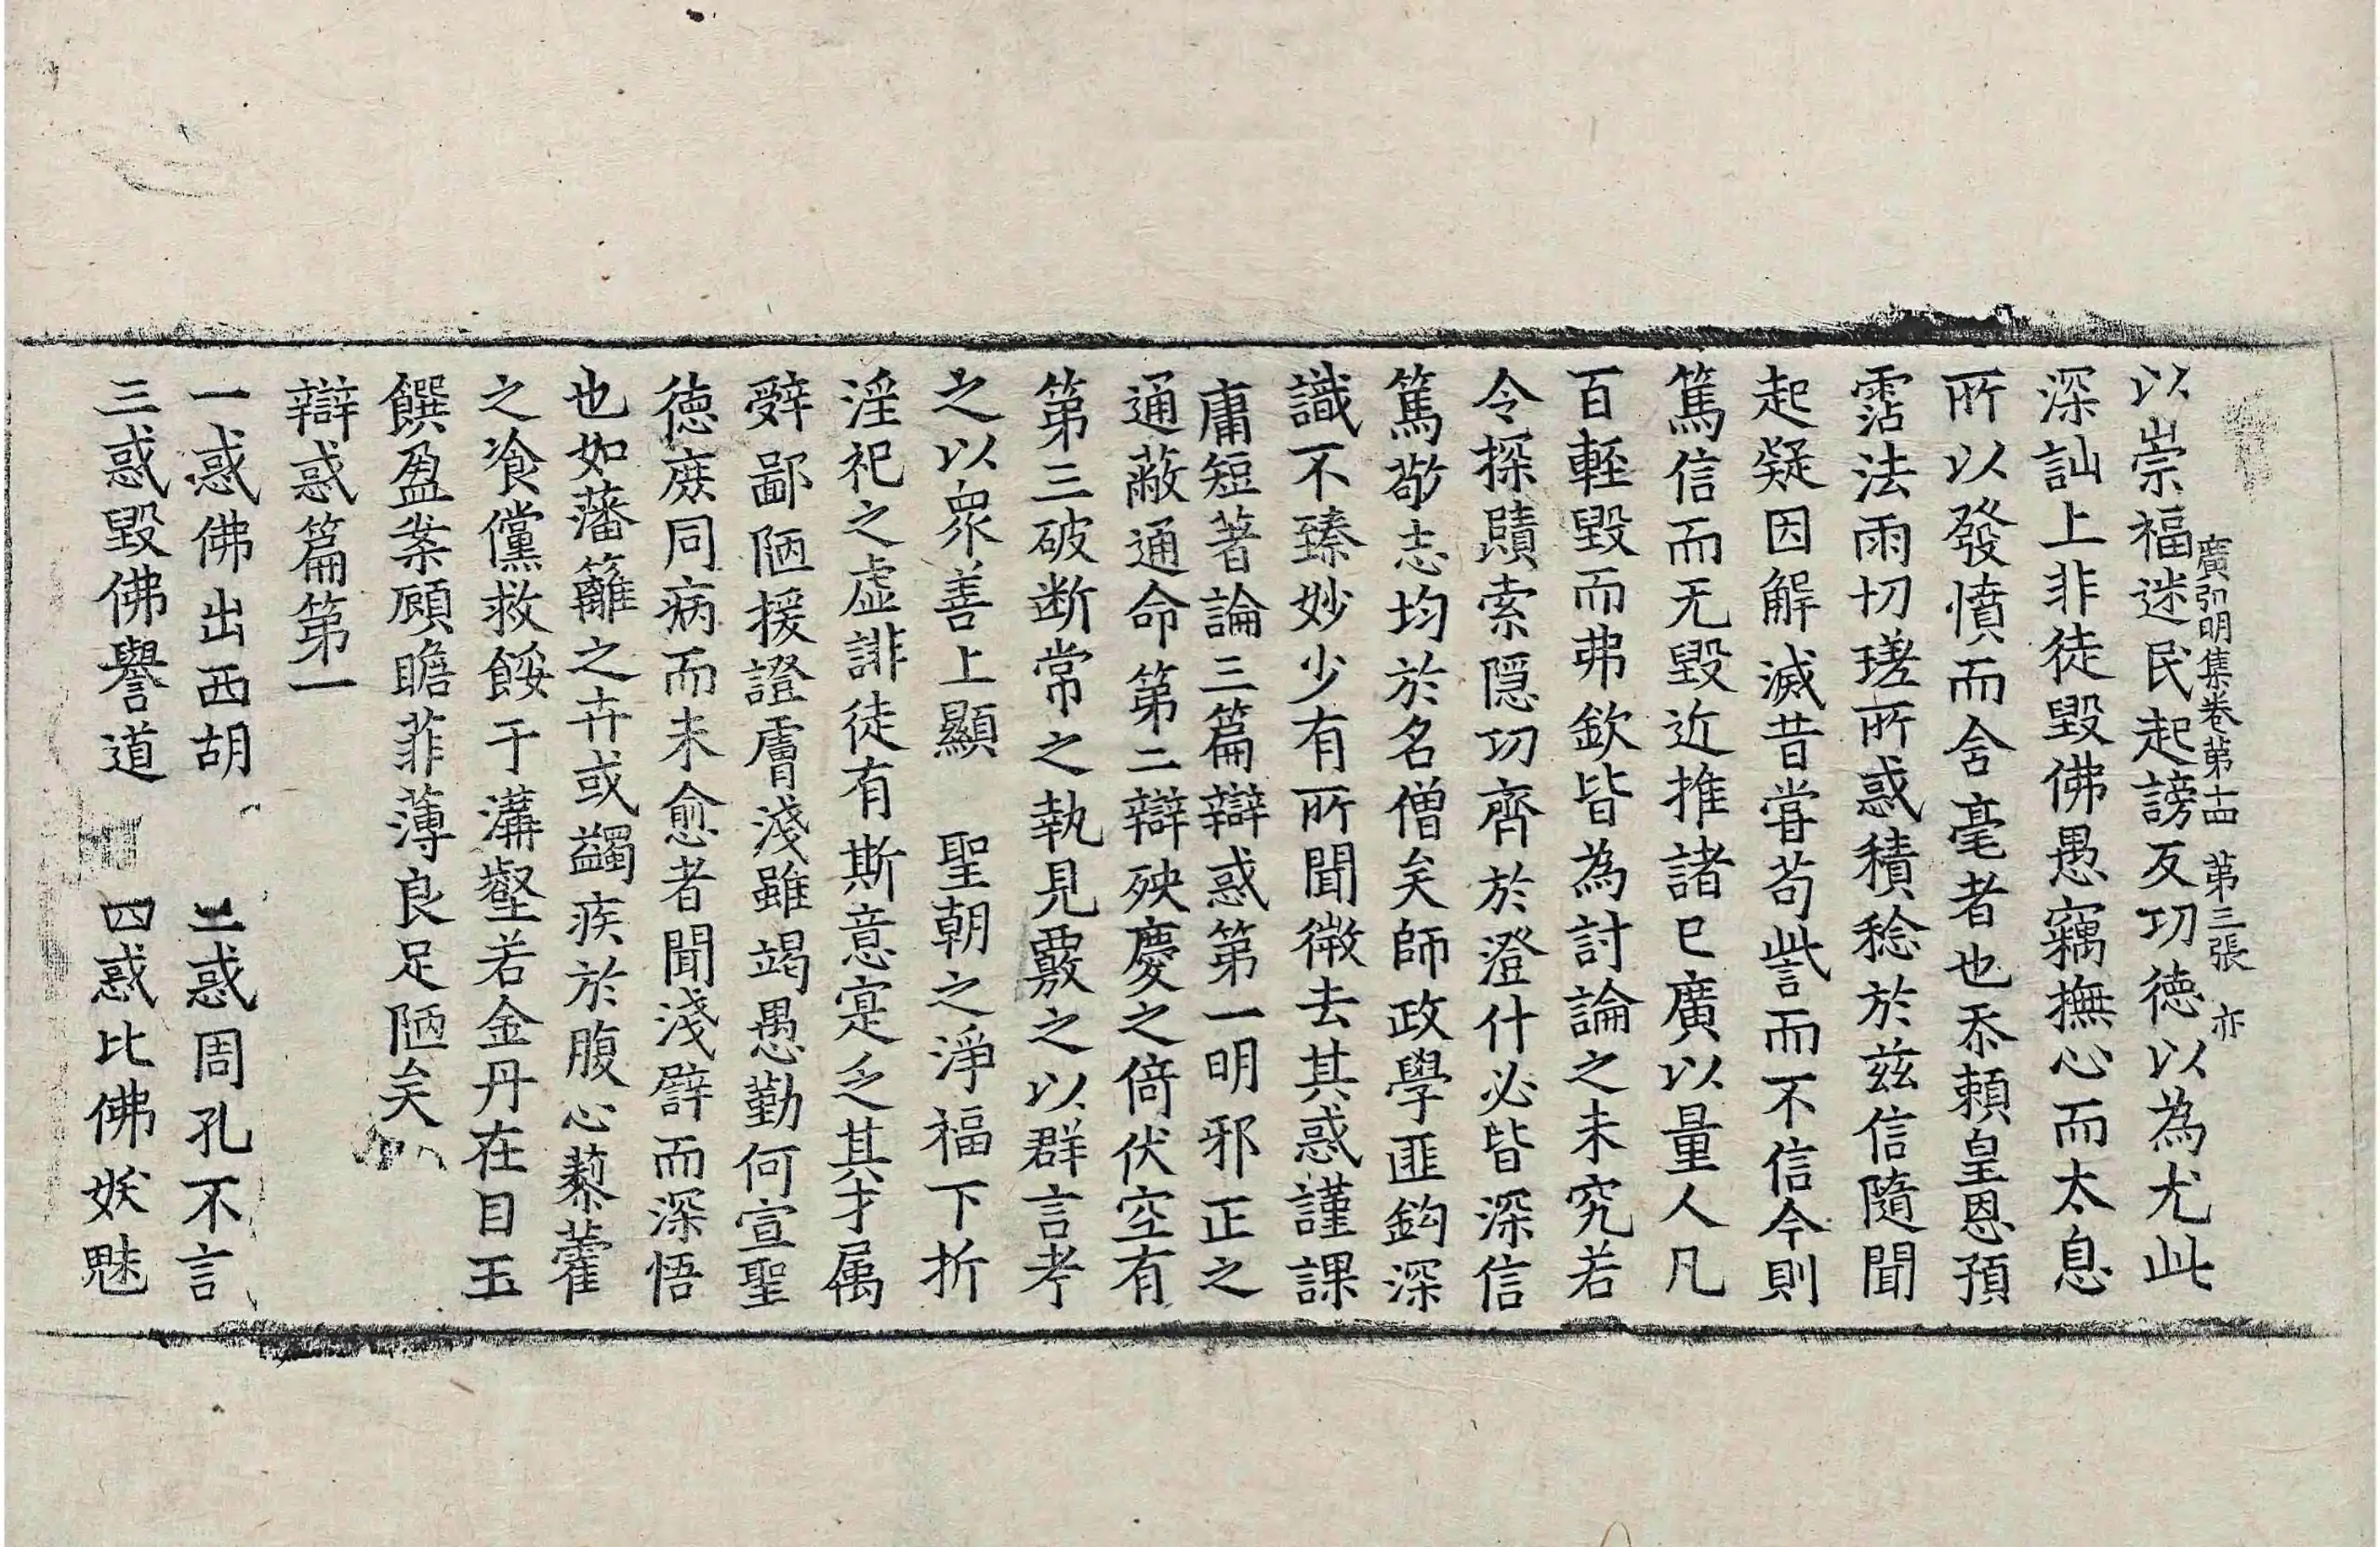 廣弘明集卷第十四 第三張 亦
以崇福迷民起謗反功徳以為尤此
深訕上非徒毀佛愚竊撫心而太息
所以發憤而舍毫者也忝頼皇恩預
霑法雨切瑳所惑積稔於兹信隨聞
起疑因解滅昔甞苟訾而不信今則
篤信而无毀近推諸已廣以量人凡
百輕毀而弗欽皆為討論之未究若
令探賾索隠功齊於澄什必皆深信
篤敬志均於名僧矣師政學匪鈎深
識不臻妙少有所聞微去其惑謹課
庸短著論三篇辯惑第一明邪正之
通蔽通命第二辯殃慶之倚伏空有
第三破断常之執見覈之以群言考
之以衆善上顯 聖朝之淨福下折
淫祀之虚誹徒有斯意寔乏其才属
辤鄙陋援證膚淺雖竭愚勤何宣聖
徳庶同病而未愈者聞淺譬而深悟
也如藩籬之卉或蠲疾於腹心藜藿
之飡儻救餒于溝壑若金丹在目玉
饌盈案顧瞻菲薄良足陋矣
辯惑篇第一
一惑佛出西胡 二惑周孔不言
三惑毀佛譽道 四惑比佛妖魅